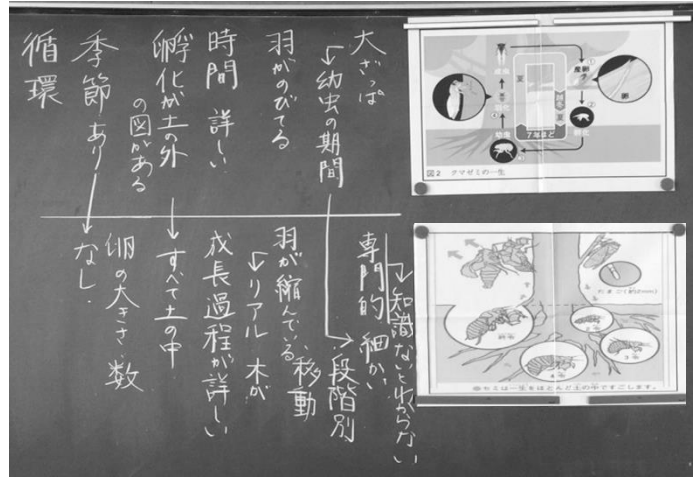 大ざっぱ
↓幼虫の期間
羽がのびてる
時間 詳しい
孵化が土の外
の図がある
季節あり
循環
↓知識ないとわからない
専門的 細かい
段階別
移動
羽が縮んでいる
↓リアル 木が
成長過程が詳しい
すべて土の中
卵の大きさ 数
なし.
産卵
卵
羽化
幼虫
7年ほど
図2 クマゼミの一生
たまご(約2mm)
セミは一生をほとんど土の中ですごします。